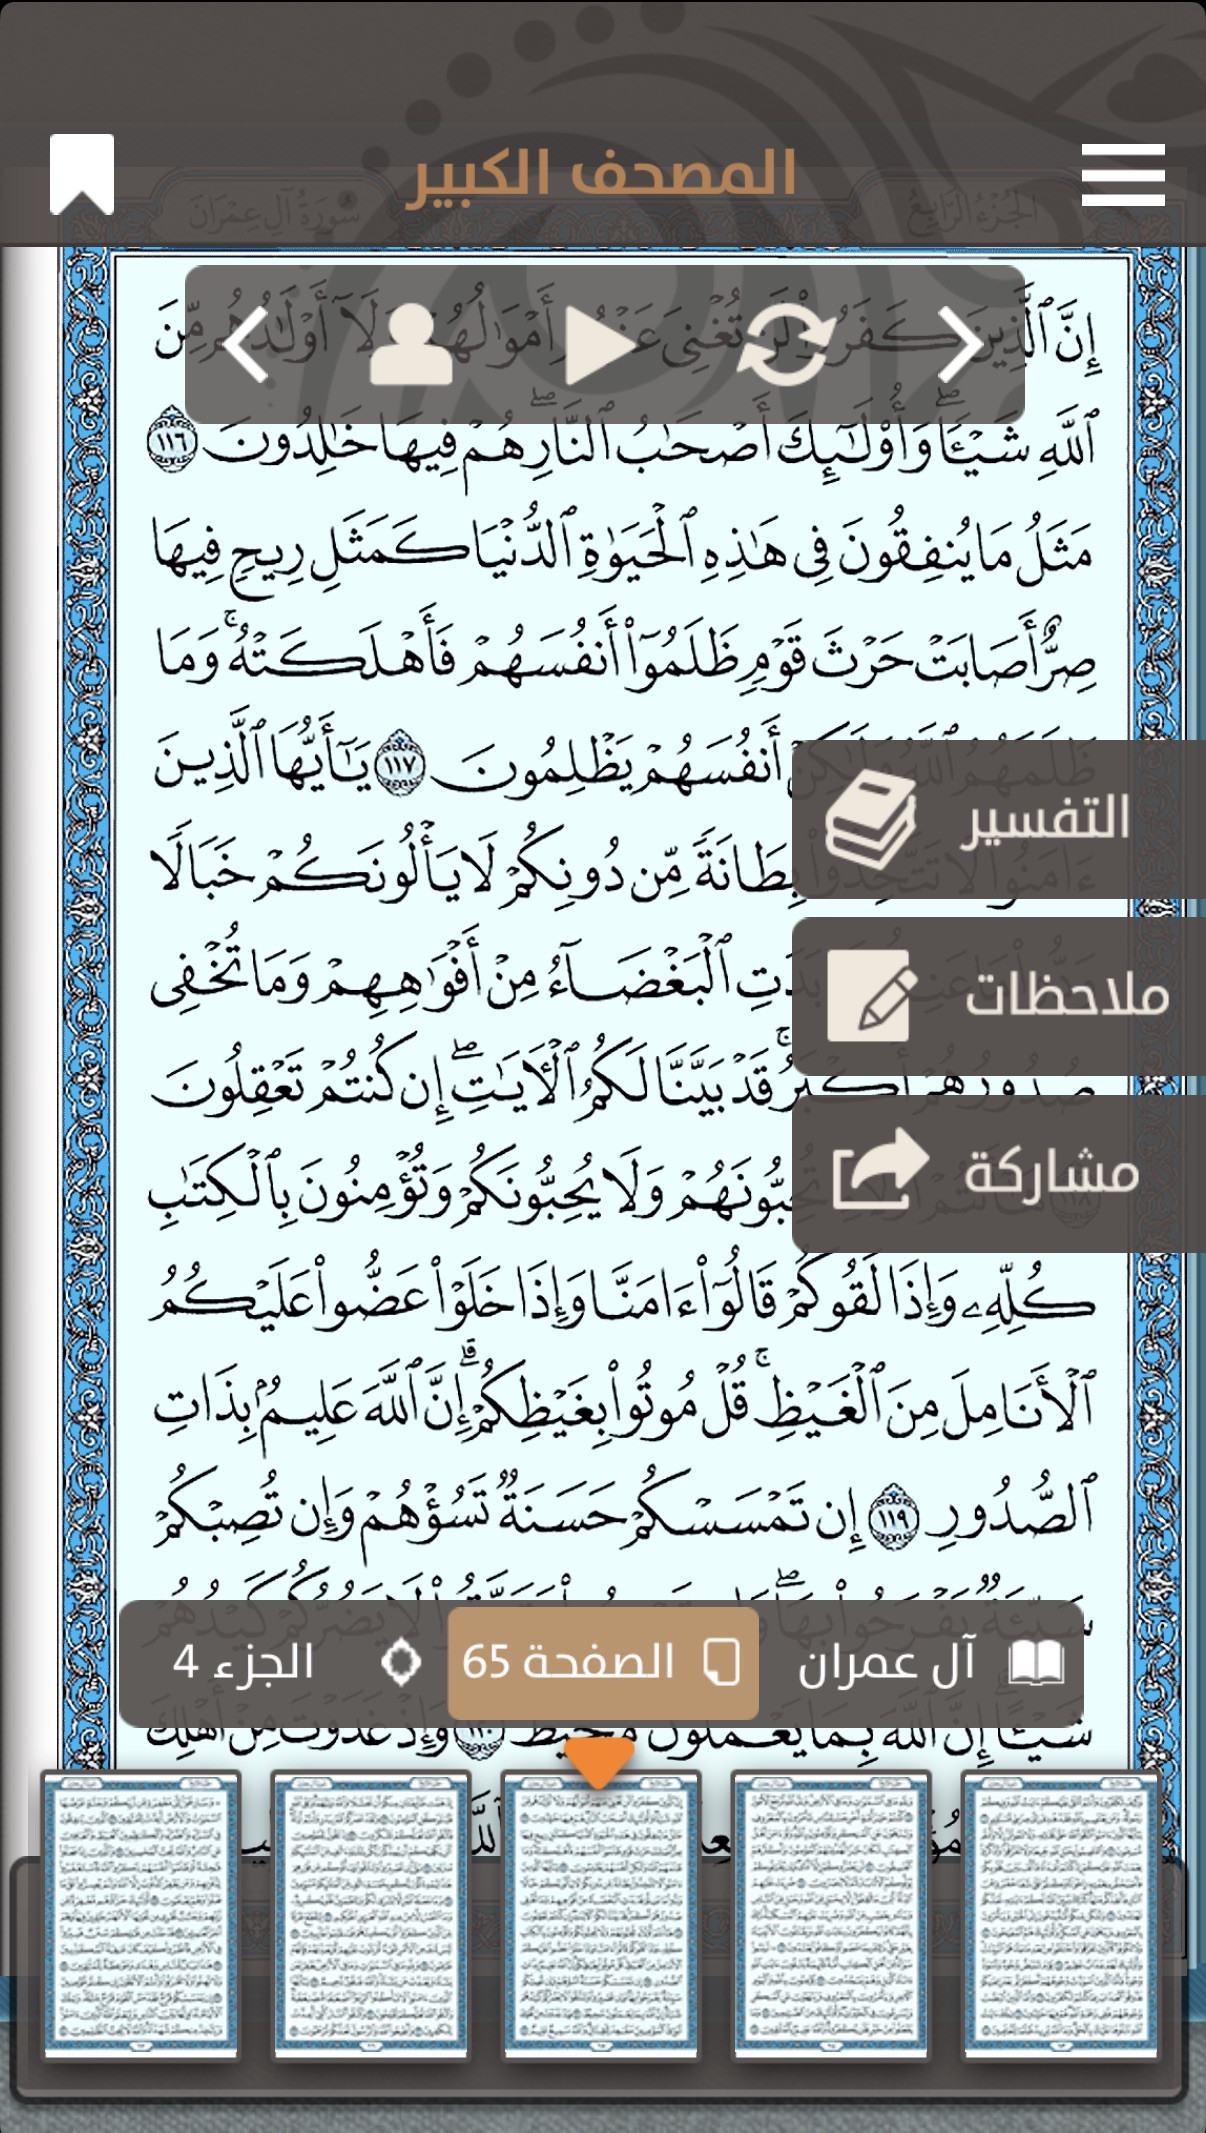 المصحف الكبير
الجزء الرابع
سورة آل عمران
إِنَّ ٱلَّذِينَ كَفَرُوا۟ لَن تُغْنِىَ عَنْهُمْ أَمْوَٰلُهُمْ وَلَآ أَوْلَٰدُهُم مِّنَ
ٱللَّهِ شَيْـًٔا ۖ وَأُو۟لَٰٓئِكَ أَصْحَٰبُ ٱلنَّارِ ۖ هُمْ فِيهَا خَٰلِدُونَ ١١٦
مَثَلُ مَا يُنفِقُونَ فِى هَٰذِهِ ٱلْحَيَوٰةِ ٱلدُّنْيَا كَمَثَلِ رِيحٍ فِيهَا
صِرٌّ أَصَابَتْ حَرْثَ قَوْمٍ ظَلَمُوٓا۟ أَنفُسَهُمْ فَأَهْلَكَتْهُ ۚ وَمَا
ظَلَمَهُمُ ٱللَّهُ وَلَٰكِنْ أَنفُسَهُمْ يَظْلِمُونَ ١١٧ يَٰٓأَيُّهَا ٱلَّذِينَ
التفسير
ءَامَنُوا۟ لَا تَتَّخِذُوا۟ بِطَانَةً مِّن دُونِكُمْ لَا يَأْلُونَكُمْ خَبَالًا
بَدَتِ ٱلْبَغْضَآءُ مِنْ أَفْوَٰهِهِمْ وَمَا تُخْفِى
ملاحظات
صُدُورُهُمْ أَكْبَرُ ۚ قَدْ بَيَّنَّا لَكُمُ ٱلْءَايَٰتِ ۖ إِن كُنتُمْ تَعْقِلُونَ
تُحِبُّونَهُمْ وَلَا يُحِبُّونَكُمْ وَتُؤْمِنُونَ بِٱلْكِتَٰبِ
مشاركة
كُلِّهِۦ وَإِذَا لَقُوكُمْ قَالُوٓا۟ ءَامَنَّا وَإِذَا خَلَوْا۟ عَضُّوا۟ عَلَيْكُمُ
ٱلْأَنَامِلَ مِنَ ٱلْغَيْظِ ۚ قُلْ مُوتُوا۟ بِغَيْظِكُمْ ۗ إِنَّ ٱللَّهَ عَلِيمٌۢ بِذَاتِ
ٱلصُّدُورِ ١١٩ إِن تَمْسَسْكُمْ حَسَنَةٌ تَسُؤْهُمْ وَإِن تُصِبْكُمْ
سَيِّئَةٌ يَفْرَحُوا۟ بِهَا ۖ لَا يَضُرُّكُمْ كَيْدُهُمْ
آل عمران
الصفحة 65
الجزء 4
شَيْـًٔا ۗ إِنَّ ٱللَّهَ بِمَا يَعْمَلُونَ مُحِيطٌ ١٢٠ وَإِذْ غَدَوْتَ مِنْ أَهْلِكَ